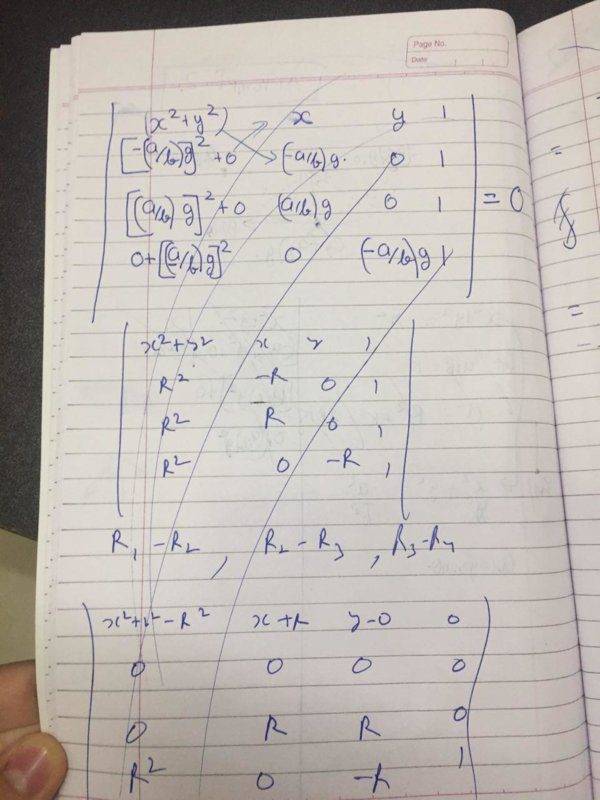 Page No.
Date
(x²+y²) x y 1
[-(a/b)g]²+0 (-a/b)g. 0 1
[(a/b) g]²+0 (a/b)g 0 1 = 0
0+[(-a/b)g]² 0 (-a/b)g 1
x²+y² x y 1
R² -R 0 1
R² R 0 1
R² 0 -R 1
R₁-R₂ , R₂-R₃ , R₃-R₄
x²+y²-R² x+R y-0 0
0 0 0 0
0 R R 0
R² 0 -R 1
=
=